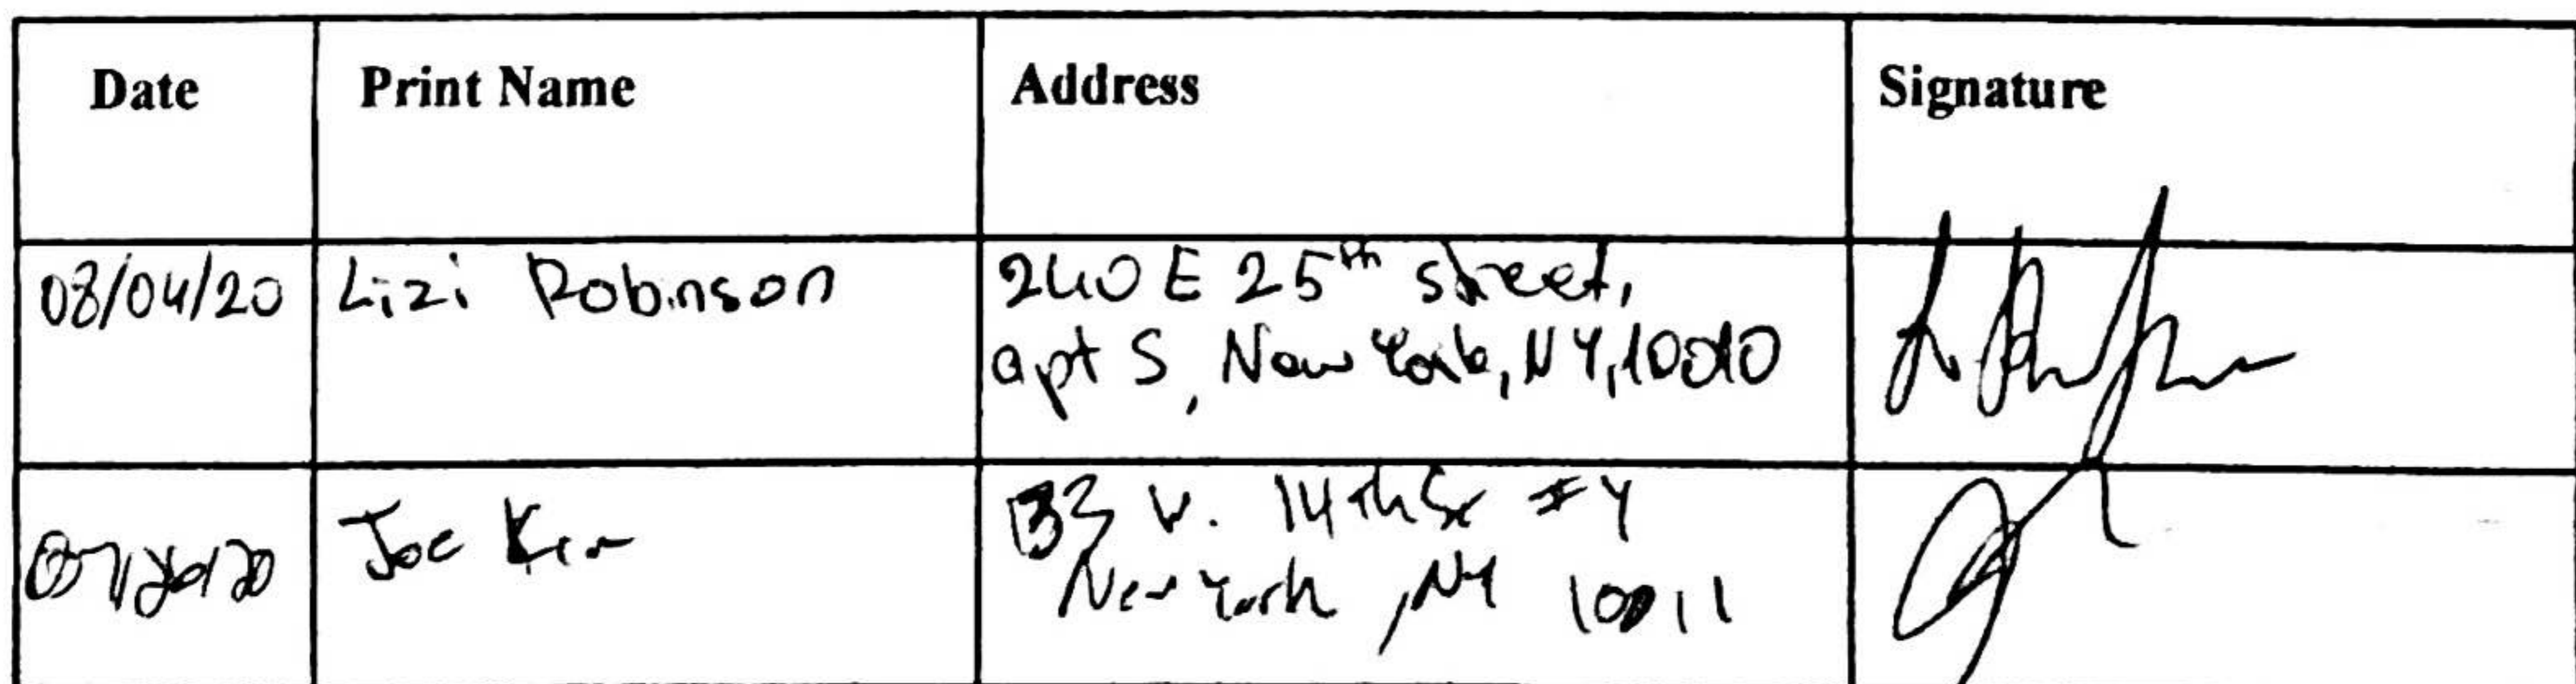 Date Print Name Address Signature
08/04/20 Lizi Robinson 240 E 25th street,
apt 5, New York, NY, 10010
Joe Kim 33 W. 14th St #4
New York, NY 10011